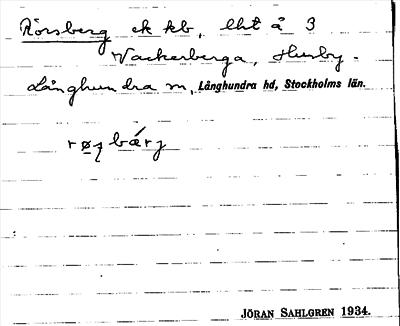 Rörsberg ek kb, lht å 3
Vackerberga, Husby-
Långhundra sn, Långhundra hd, Stockholms län.
røʂbárj
JÖRAN SAHLGREN 1934.